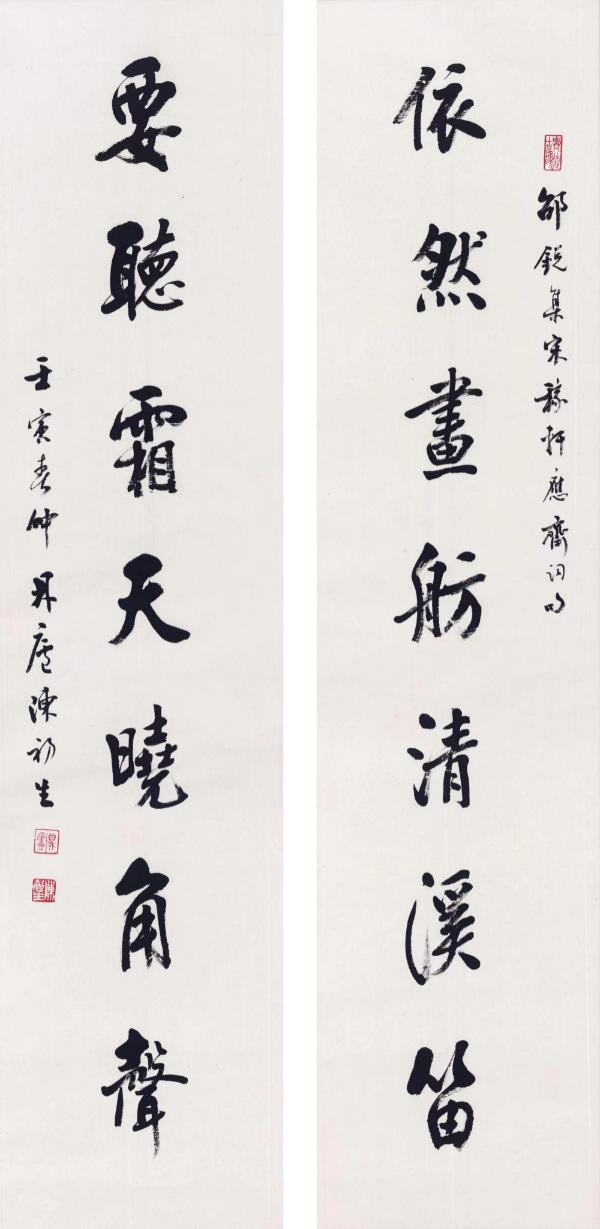 邵銳集宋稼軒應齋詞句
依然畫舫清溪笛
要聽霜天曉角聲
壬寅春仲
廬陳初生